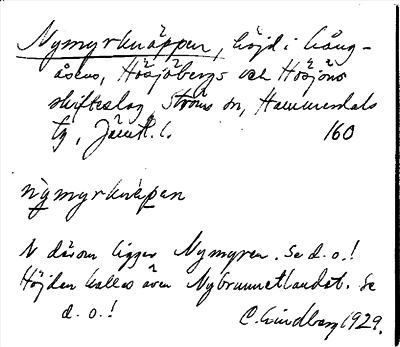 Nymyrknäppen, höjd i Lång-
åsens, Högsjöbergs och Högsjöns
skifteslag, Ströms sn, Hammerdals
tg, Jämtl. l. 160
nymyrknäpen
N därom ligger Nymyren. Se d. o.!
Höjden kallas även Nybrunnetlandet. Se
d. o.!
C. Lindberg 1929.